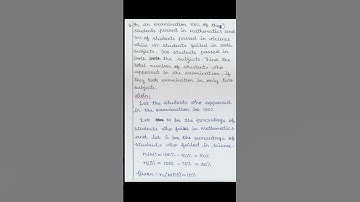 In an examination 50% of the
students passed in Mathematics and
70% of students passed in science
while 10% students failed in both
subjects. 300 students passed in
both the subjects. Find the
total number of students who
appeared in the examination, if
they took examination in only two
subjects.
Let the students who appeared
in the examination be 100%.
Let M be the percentage of
students who failed in Mathematics
and let S be the percentage of
students who failed in science
n(M) = 100% - 50% = 50%
n(S) = 100% - 70% = 30%
Given: n(M∩S) = 10%